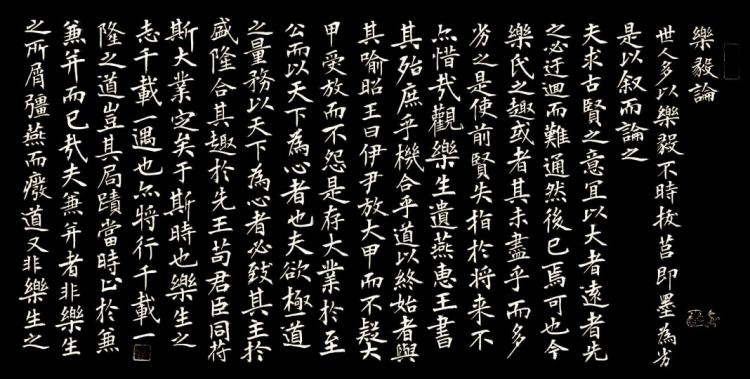 樂毅論
世人多以樂毅不時拔莒即墨為劣
是以叙而論之
夫求古賢之意宜以大者遠者先
之必迂迴而難通然後已焉可也今
樂氏之趣或者其未盡乎而多
劣之是使前賢失指於将来不
亦惜哉觀樂生遺燕惠王書
其殆庶乎機合乎道以終始者與
其喻昭王曰伊尹放大甲而不疑大
甲受放而不怨是存大業於至
公而以天下為心者也夫欲極道
之量務以天下為心者必致其主於
盛隆合其趣於先王苟君臣同符
斯大業定矣于斯時也樂生之
志千載一遇也亦將行千載一
隆之道豈其局蹟當時止於兼
兼并而已哉夫兼并者非樂生
之所屑彊燕而廢道又非樂生之